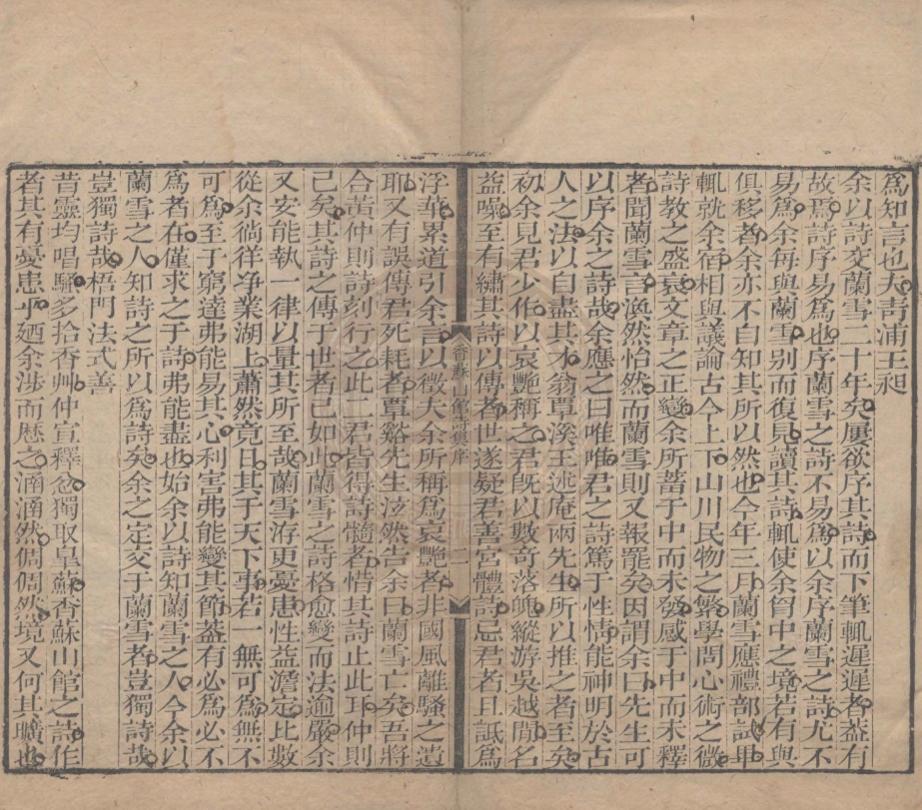 為知言也大青浦王昶
余以詩交蘭雪二十年矣屢欲序其詩而下筆輒遲遲者葢有
故焉詩序易為也序蘭雪之詩不易為以余序蘭雪之詩尤不
易為余每與蘭雪别而復見讀其詩輒使余胷中之境若有與
俱移者余亦不自知其所以然也今年三月蘭雪應禮部試畢
輒就余宿相與議論古今上下山川民物之繁學問心術之微
詩教之盛衰文章之正變余所蓄于中而未發感于中而未釋
者聞蘭雪言渙然怡然而蘭雪則又報罷矣因謂余曰先生可
以序余之詩哉余應之曰唯唯君之詩篤于性情能神明於古
人之法以自盡其才翁覃溪王述庵兩先生所以推之者至矣
初余見君少作以哀艷稱之君旣以數奇落魄縱游吳越閒名
益噪至有繡其詩以傳者世遂疑君善宮體詩忌君者且詆為
香蘇山館詩集序
二
浮華累道引余言以徵夫余所稱為哀艷者非國風離騷之遺
耶又有誤傳君死耗者覃谿先生泣然告余曰蘭雪亡矣吾將
合黃仲則詩刻行之此二君皆得詩髓者惜其詩止此耳仲則
已矣其詩之傳于世者已如此蘭雪之詩格愈變而法逾嚴余
又安能執一律以量其所至哉蘭雪洊更憂患性益澹定比數
從余徜徉净業湖上蕭然竟日其于天下事若一無可為無不
可為至于窮達弗能易其心利害弗能變其節葢有必為必不
為者在僅求之于詩弗能盡也始余以詩知蘭雪之人今余以
蘭雪之人知詩之所以為詩矣余之定交于蘭雪者豈獨詩哉
豈獨詩哉梧門法式善
昔靈均唱騷多拾香艸仲宣釋忿獨取皐蘇香蘇山館之詩作
者其有憂患乎廼余涉而歷之涵涵然倜倜然境又何其曠也